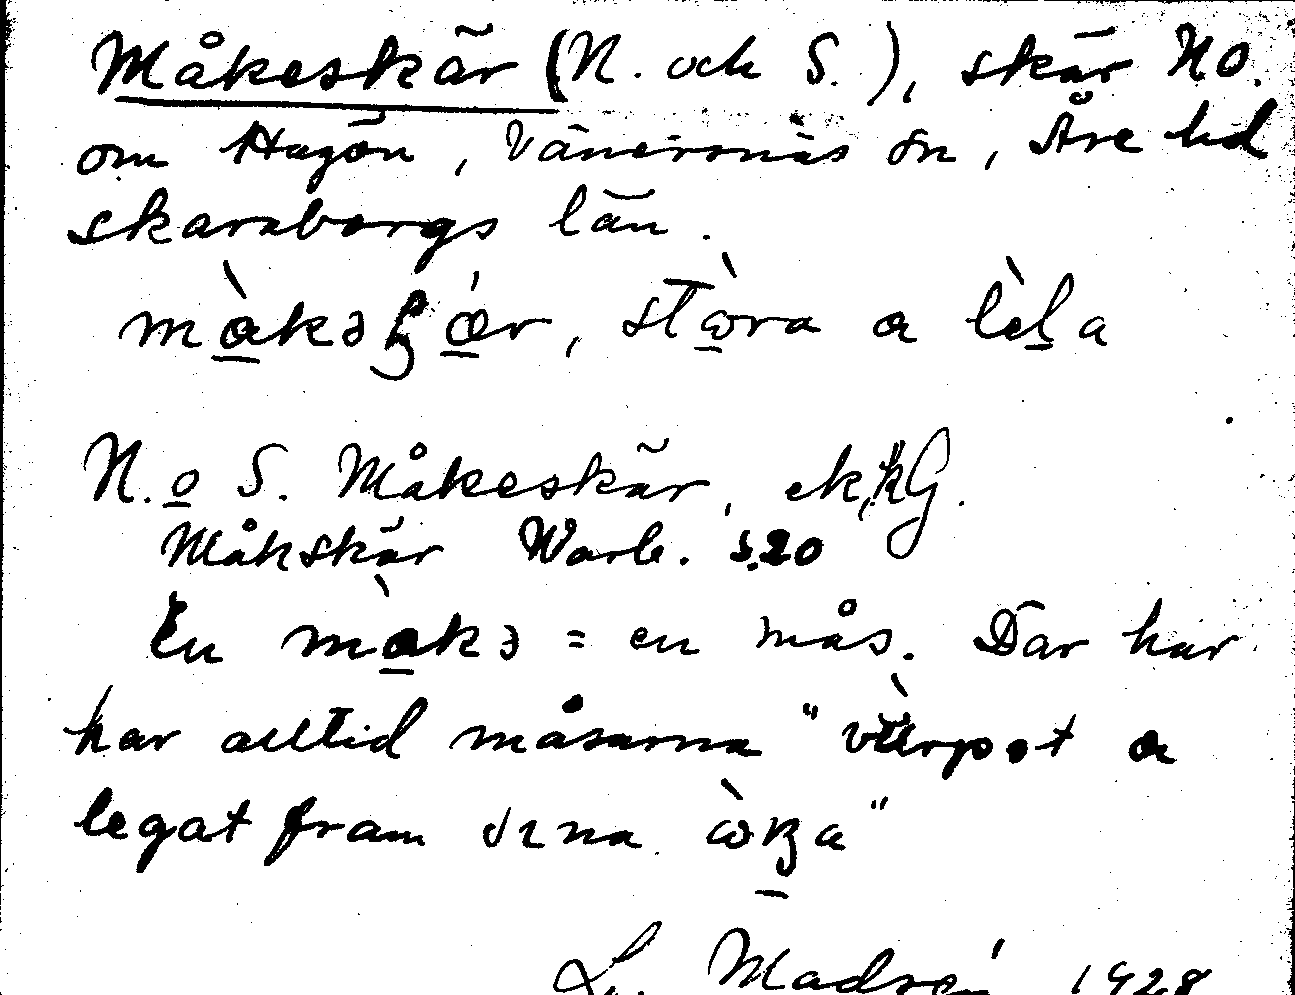 Måkeskär (N. och S.), skär NO.
om Hagön, Vänersnäs sn, Åse hd
skaraborgs län.
màkəʂɧǽr, stòra a lèla
N. o S. Måkeskär, ek, kG.
Måkskär Warb. s.20
En màkə = en mås. Där har
har alltid måsarna "värpət a
legat fram sina
L. Madsén 1928